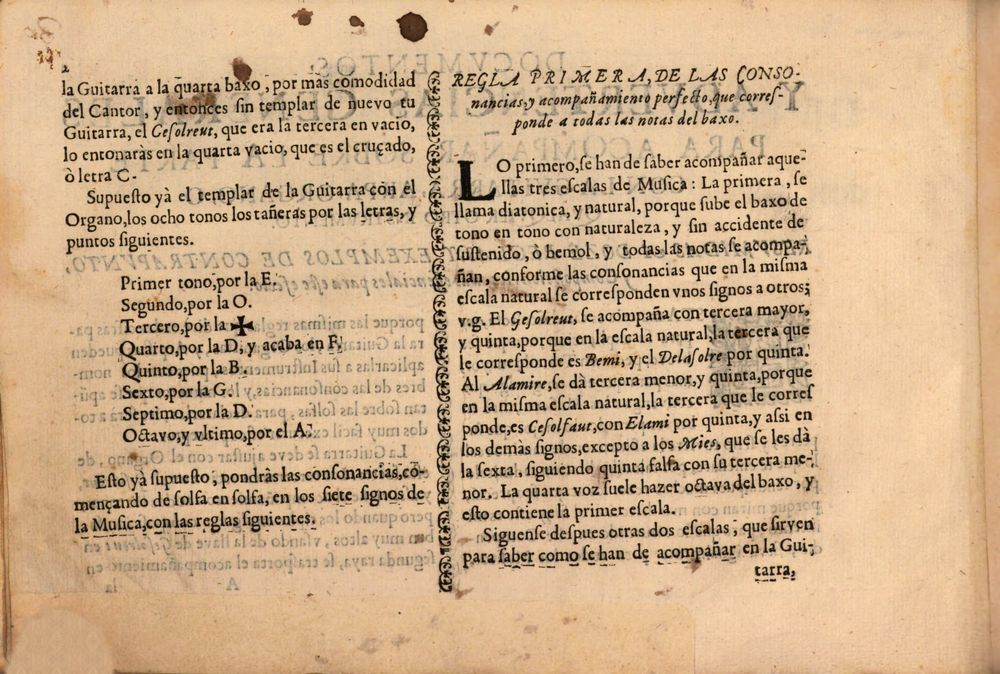 2
la Guitarra à la quarta baxo, por mas comodidad
del Cantor, y entonces sin templar de nuevo tu
Guitarra, el Cesolreut, que era la tercera en vacio,
lo entonaràs en la quarta vacio, que es el cruçado,
ò letra C.
Supuesto yà el templar de la Guitarra con el
Organo, los ocho tonos los tañeras por las letras, y
puntos siguientes.
Primer tono, por la E.
Segundo, por la O.
Tercero, por la ✠
Quarto, por la D, y acaba en F,
Quinto, por la B.
Sexto, por la G.
Septimo, por la D.
Octavo, y vltimo, por el A.
Esto yà supuesto, pondràs las consonancias, co-
mençando de solfa en solfa, en los siete signos de
la Musica, con las reglas siguientes.
REGLA PRIMERA, DE LAS CONSO-
nancias, y acompañamiento perfecto, que corres-
ponde a todas las notas del baxo.
LO primero, se han de saber acompañar aque-
llas tres escalas de Musica: La primera, se
llama diatonica, y natural, porque sube el baxo de
tono en tono con naturaleza, y sin accidente de
sustenido, ò bemol, y todas las notas se acompa-
ñan, conforme las consonancias que en la misma
escala natural se corresponden vnos signos a otros;
v.g. El Gesolreut, se acompaña con tercera mayor,
y quinta, porque en la escala natural, la tercera que
le corresponde es Bemi, y el Delasolre por quinta.
Al Alamire, se dà tercera menor, y quinta, porque
en la misma escala natural, la tercera que le corres
ponde, es Cesolfaut, con Elami por quinta, y assi en
los demàs signos, excepto a los Mies, que se les dà
la sexta, siguiendo quinta falsa con su tercera me-
nor. La quarta voz suele hazer octava del baxo, y
esto contiene la primer escala.
Siguense despues otras dos escalas, que sirven
para saber como se han de acompañar en la Gui-
tarra,